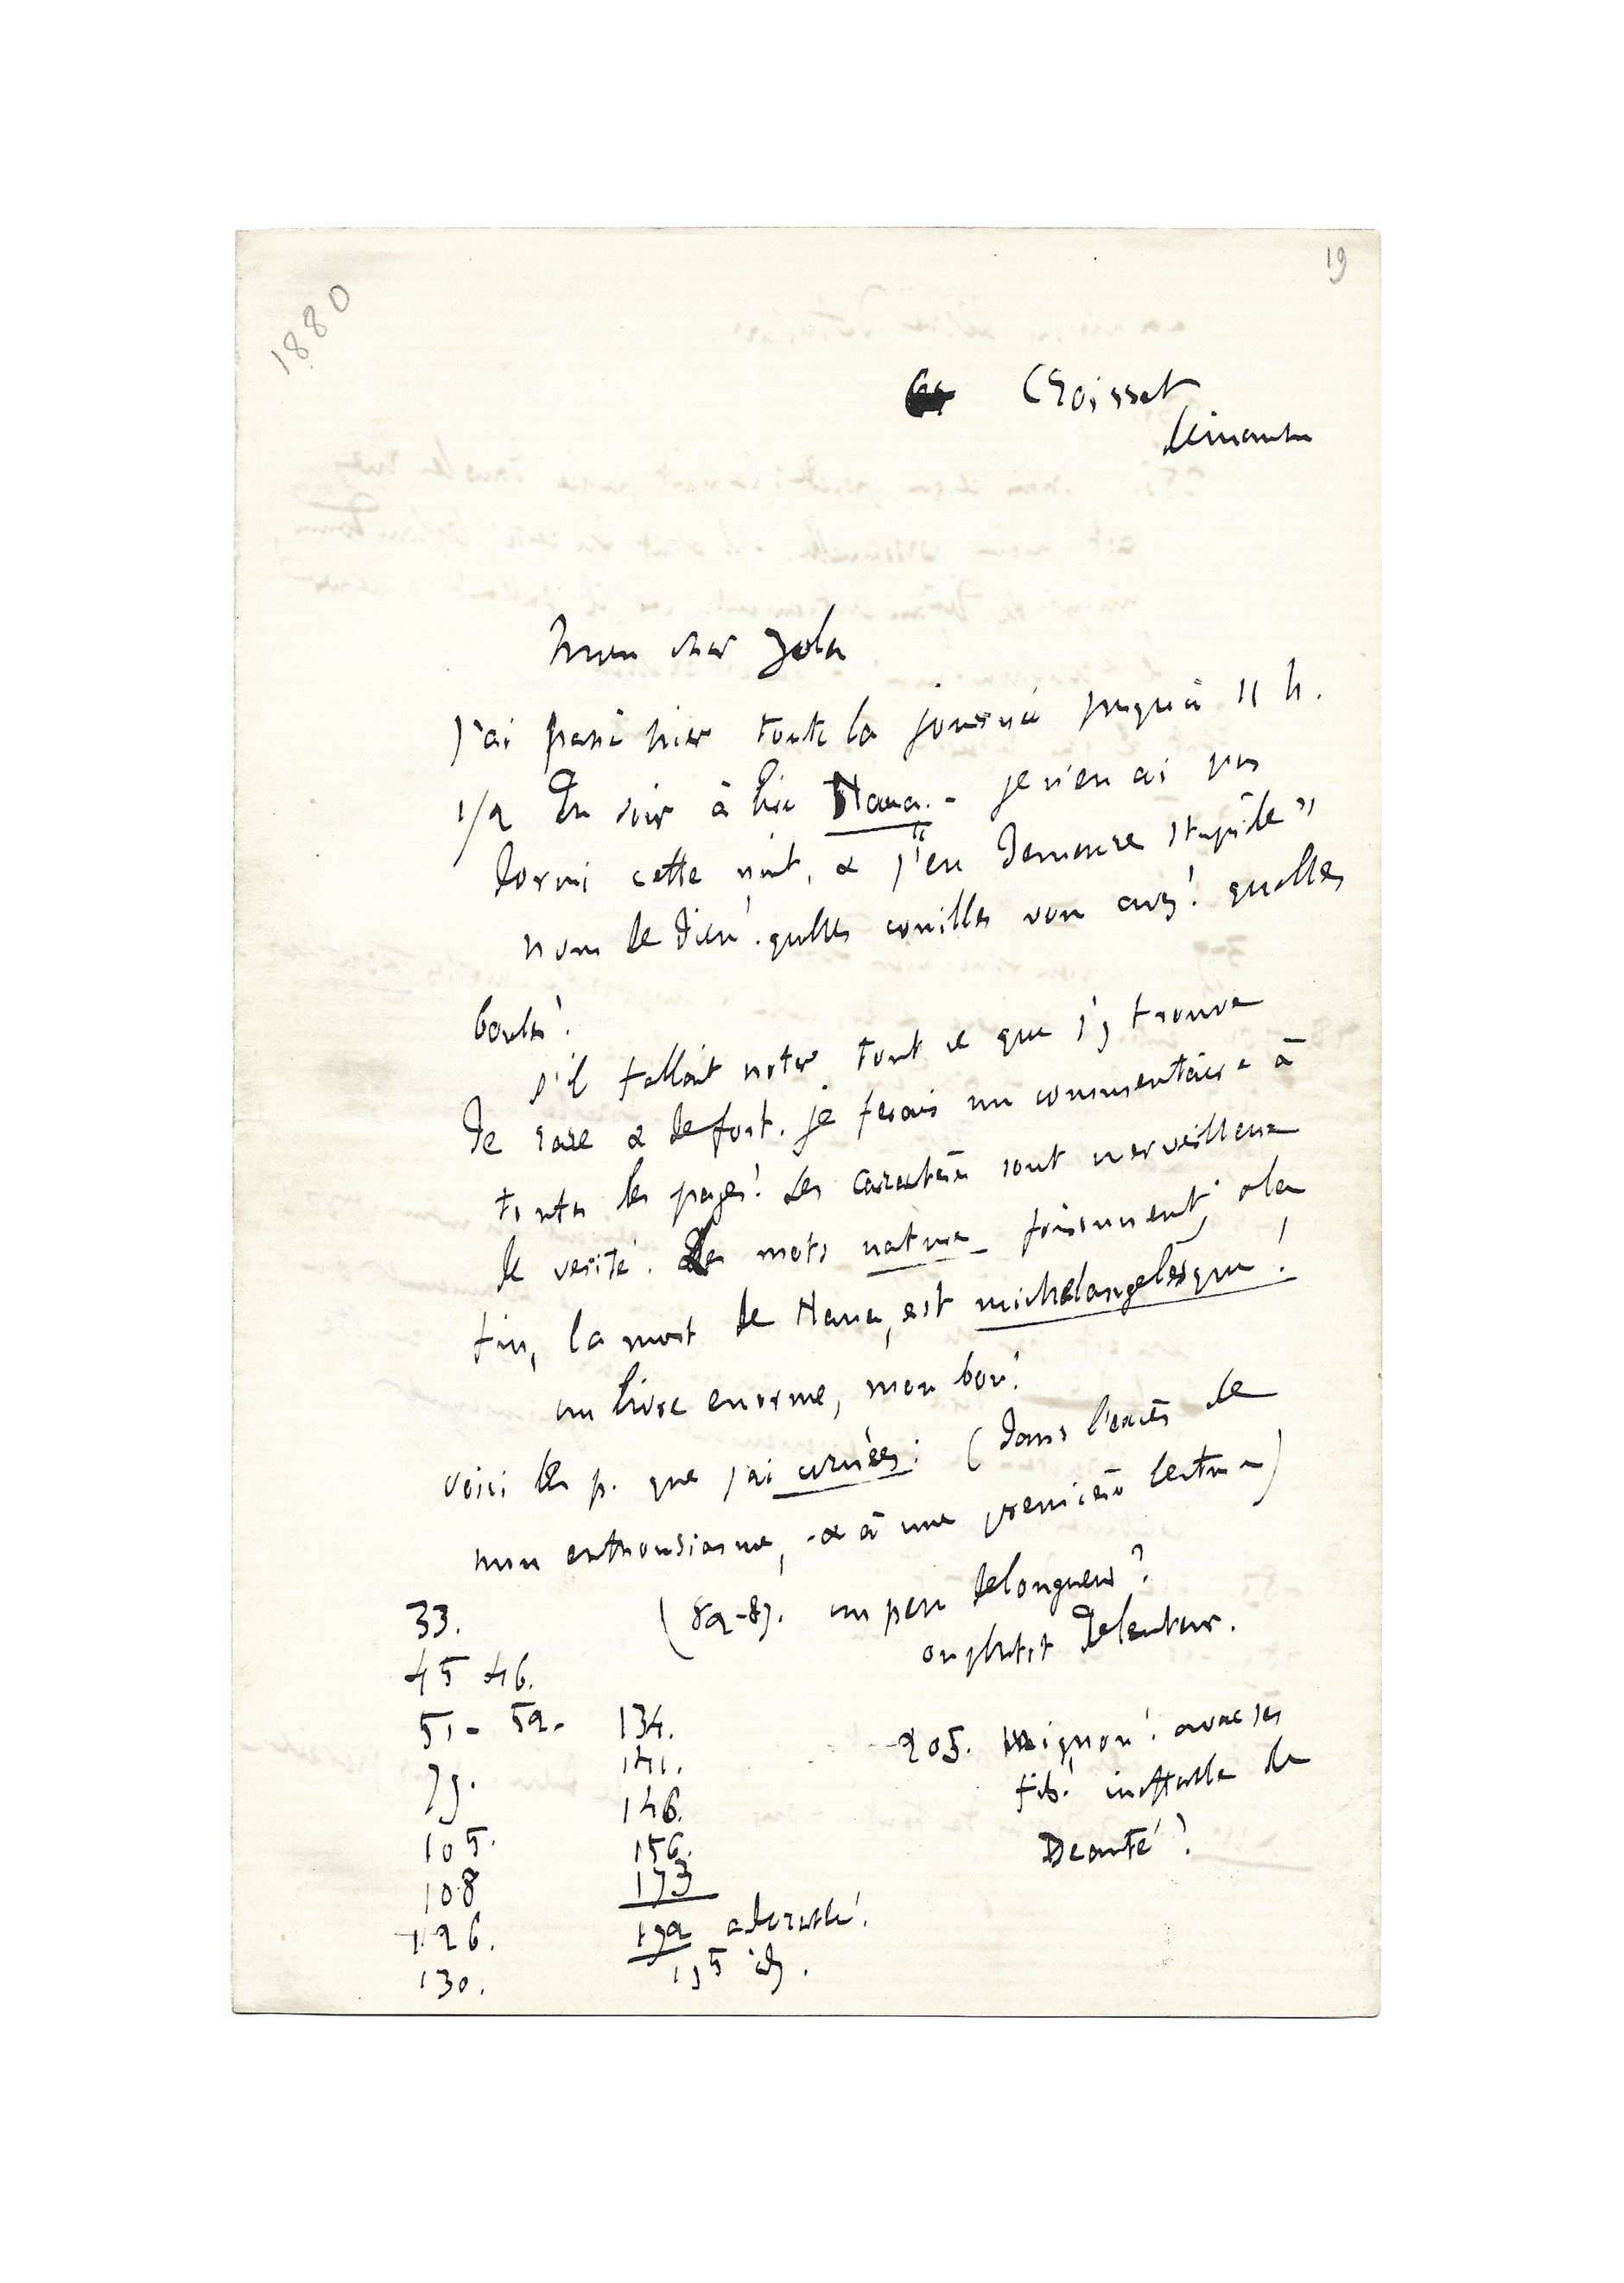 19
1880
Croisset
dimanche
Mon cher Zola
J'ai passé hier toute la journée jusqu'à 11 h.
1/2 du soir à lire Nana. - je n'en ai pas
dormi cette nuit, & "j'en demeure stupide"
nom de dieu! quelles couilles vous avez! quelles
boules!
S'il fallait noter tout ce que j'y trouve
de rare & de fort. je ferais un commentaire à
toutes les pages! Les caractères sont merveilleux
de vérité. Les mots nature foisonnent; & la
fin, la mort de Nana, est michelangelesque!
un livre enorme, mon bon!
voici les p. que j'ai cornées: (dans l'excès de
mon enthousiasme, - & à une première lecture)
33. (82-87. un peu de longueur?
ou plutôt de lenteur.
45 46.
51 - 52 - 134. 205. Mignon! avec ses
79. 141. fils! ineffable de
146. Beauté!
105. 156.
108 173
126. 192 adorable!
130. 195 id.